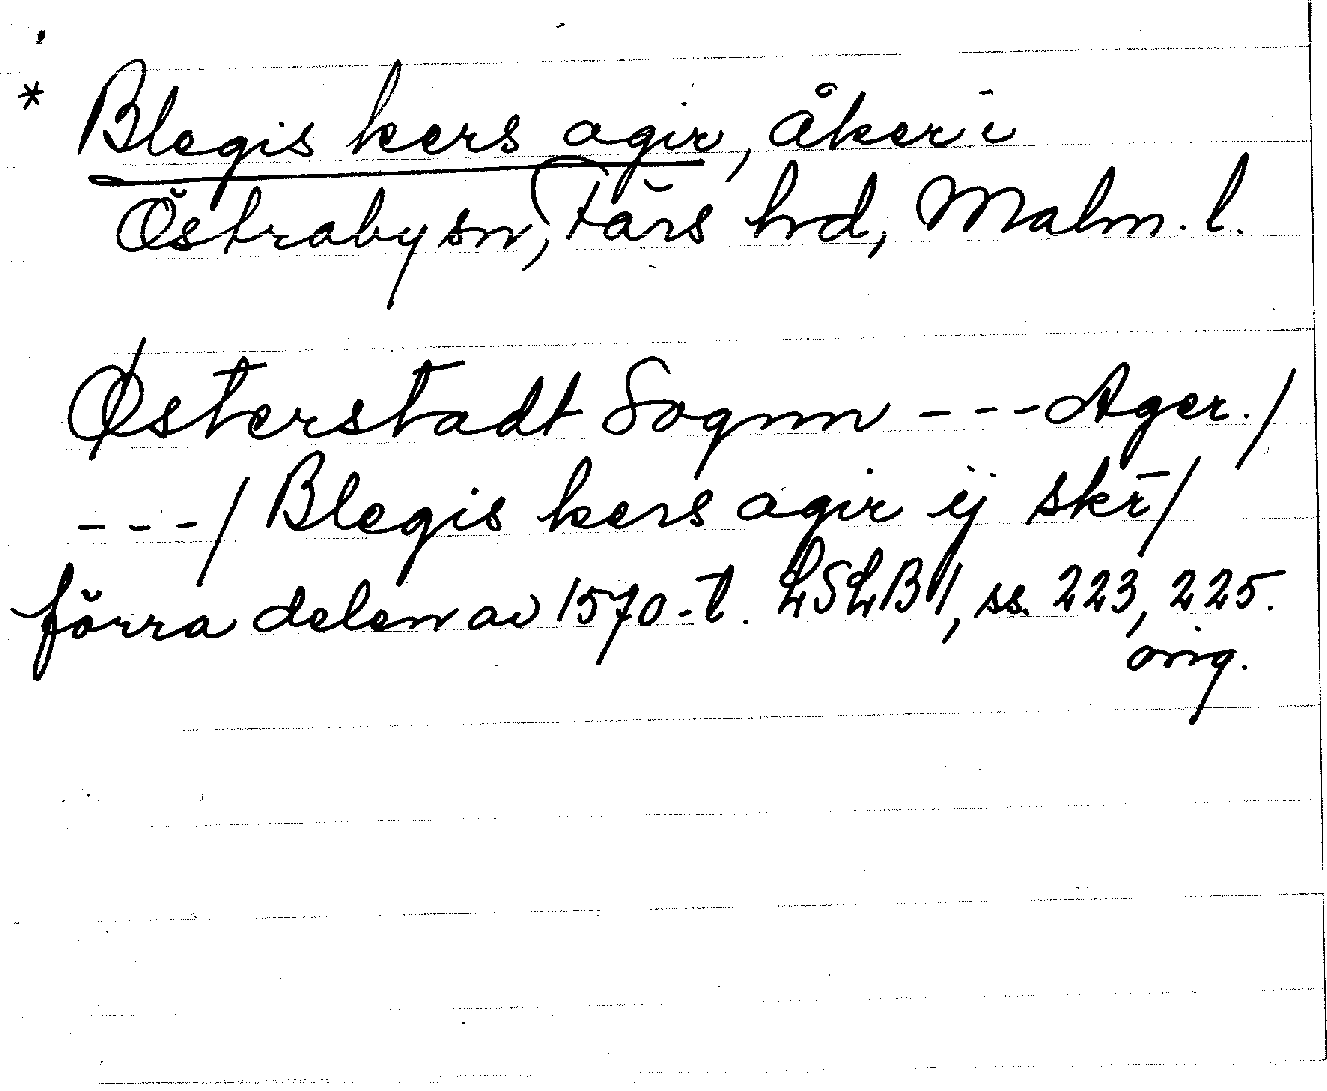 * Blegis kers agir, åker i
Östraby sn, Färs hd, Malm. l.
Østerstadt Sognn - - - Ager./
- - -/ Blegis kers agir ij skr̄/
förra delen av 1570-t. LSLB 1, ss. 223, 225.
orig.